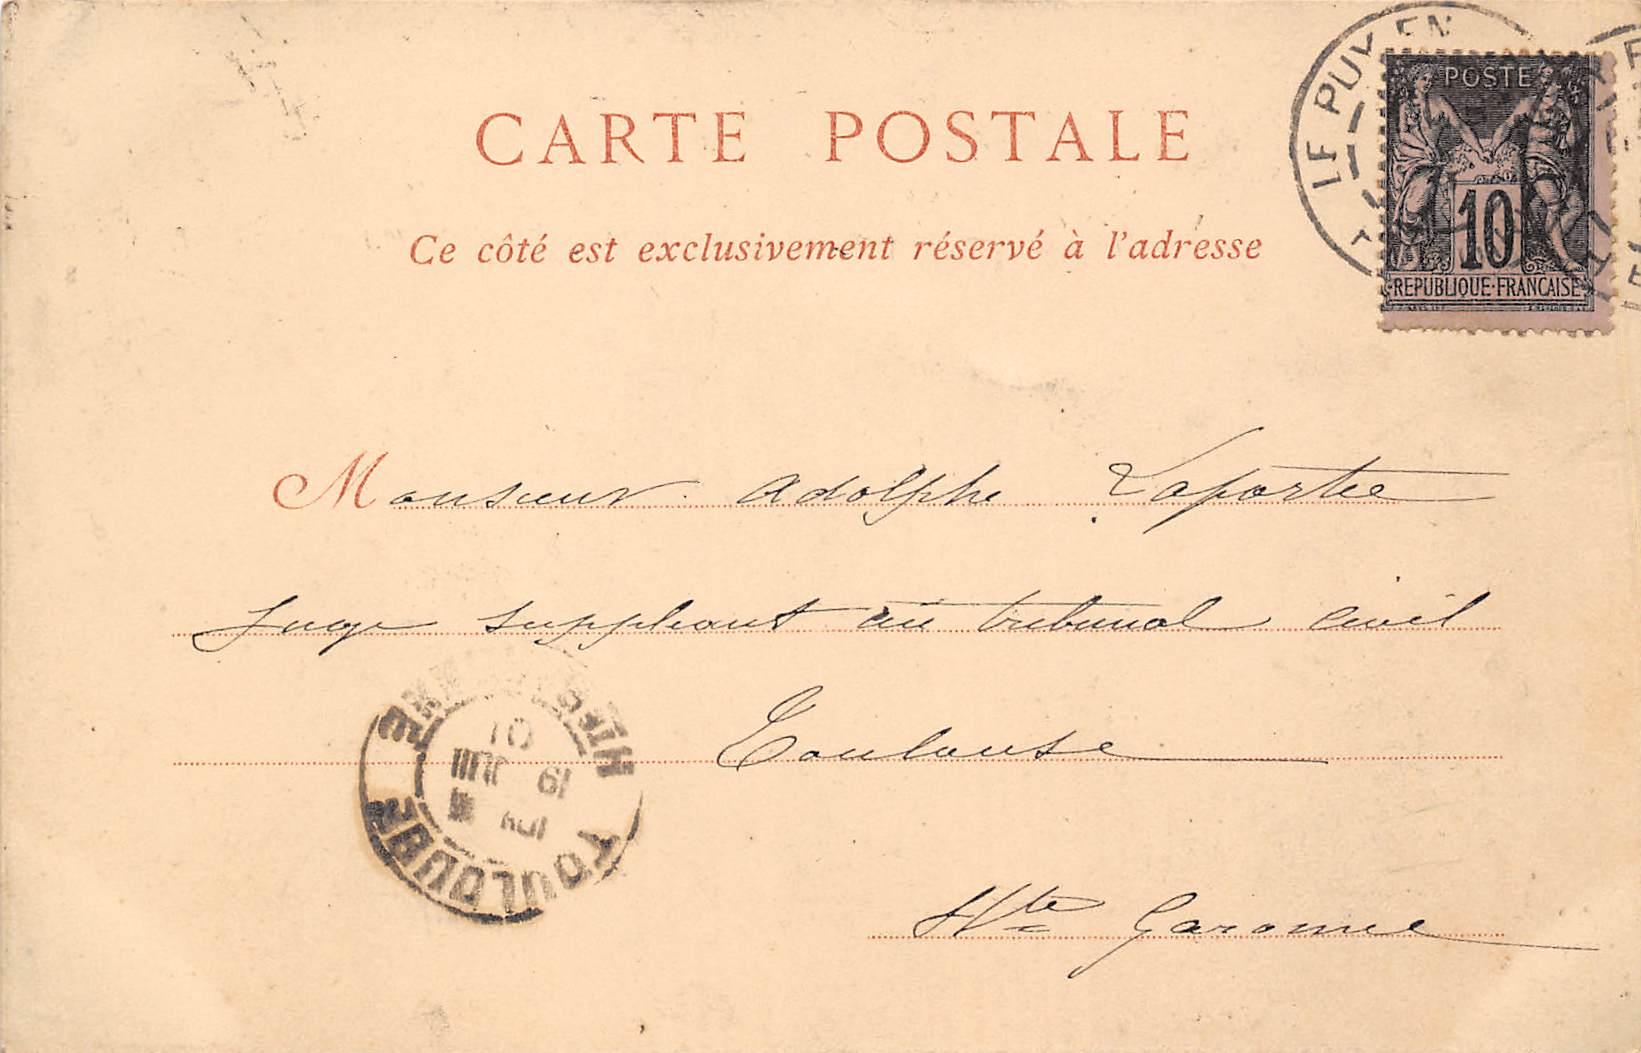 LE PUY EN
POSTE
10
REPUBLIQUE FRANCAISE
CARTE POSTALE
Ce côté est exclusivement réservé à l'adresse
Monsieur Adolphe Laporte
Juge suppléant au tribunal civil
Toulouse
Hte Garonne
TOULOUSE
19 JUIL
01